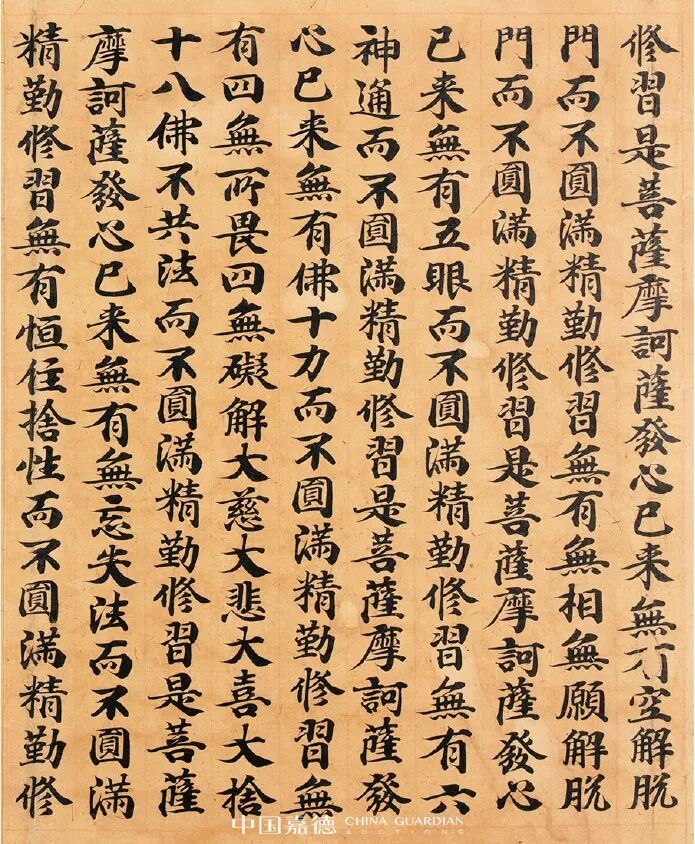 修習是菩薩摩訶薩發心已来無有空解脫
門而不圓滿精勤修習無有無相無願解脫
門而不圓滿精勤修習是菩薩摩訶薩發心
已来無有五眼而不圓滿精勤修習無有六
神通而不圓滿精勤修習是菩薩摩訶薩發
心已来無有佛十力而不圓滿精勤修習無
有四無所畏四無礙解大慈大悲大喜大捨
十八佛不共法而不圓滿精勤修習是菩薩
摩訶薩發心已来無有無忘失法而不圓滿
精勤修習無有恒住捨性而不圓滿精勤修
中国嘉德 CHINA GUARDIAN
AUCTIONS